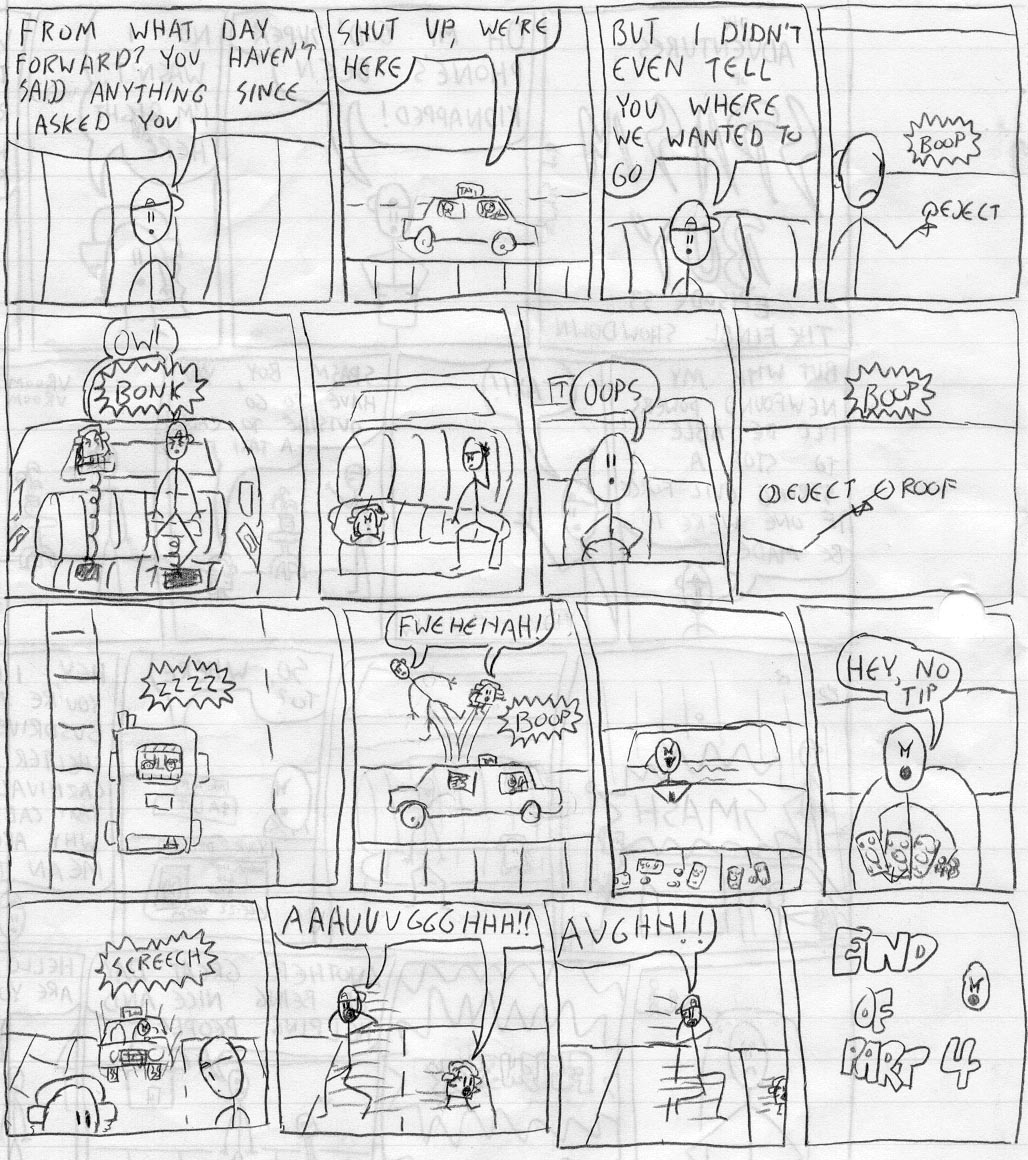 FROM WHAT DAY
FORWARD? YOU HAVEN'T
SAID ANYTHING SINCE
I ASKED YOU
SHUT UP, WE'RE
HERE
TAXI
BUT I DIDN'T
EVEN TELL
YOU WHERE
WE WANTED TO
GO
BOOP
EJECT
OW!
BONK
OOPS
BOOP
EJECT ROOF
ZZZZZ
FWEHEHAH!
BOOP
HEY, NO
TIP
SCREECH
AAAUUUGGGHHH!!
AUGHH!!
END
OF
PART 4